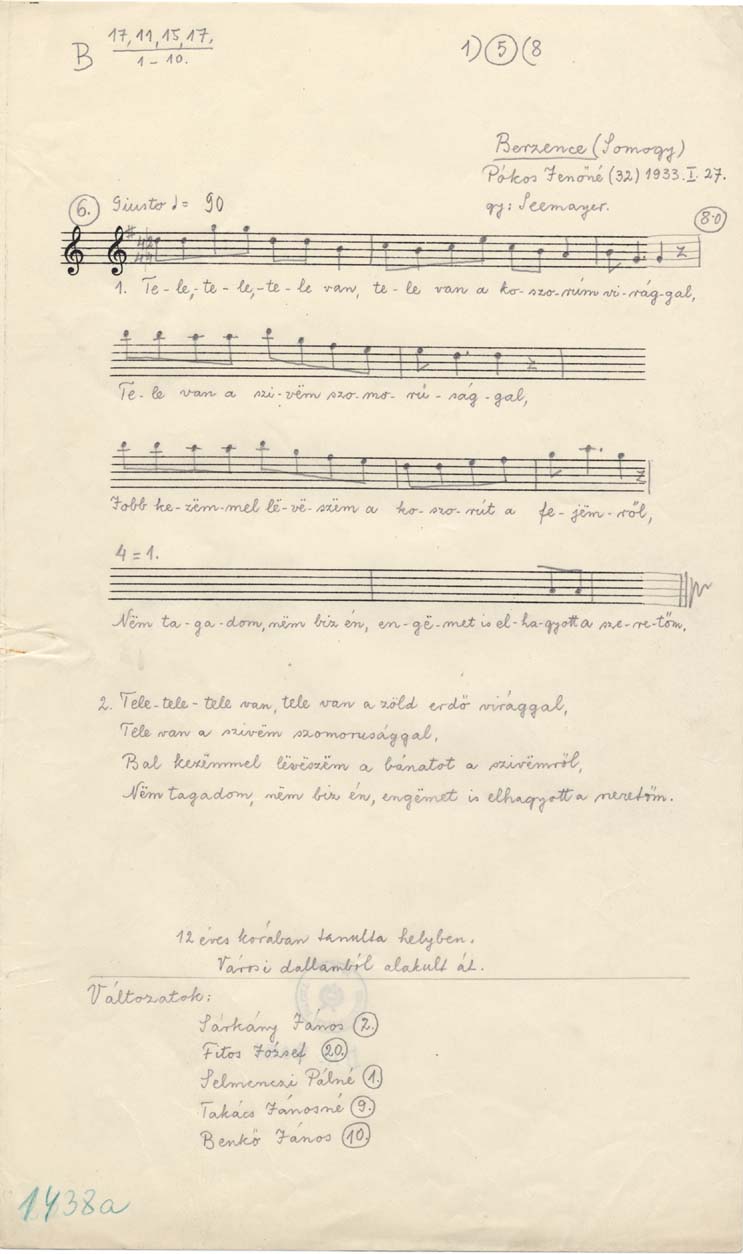 B 17, 11, 15, 17.
1 – 10.
1) 5 (8
Berzence (Somogy)
Pókos Jenőné (32) 1933. I. 27.
gy: Seemayer.
6. Giusto ♩= 90
8-0
1. Te-le,-te-le,-te-le van, te-le van a ko-szo-rúm vi-rág-gal,
Te-le van a szi-vëm szo-mo-rú-ság-gal,
Jobb ke-zëm-mel lë-vë-szëm a ko-szo-rút a fe-jëm-ről,
4 = 1.
Nëm ta-ga-dom, nëm biz én, en-gë-met is el-ha-gyott a sze-re-tőm.
2. Tele-tele-tele van, tele van a zöld erdő virággal,
Tele van a szivëm szomorusággal,
Bal kezëmmel lëvëszëm a bánatot a szivëmről,
Nëm tagadom, nëm biz én, engëmet is elhagyott a szeretőm.
12 éves korában tanulta helyben.
Városi dallamból alakult át.
Változatok:
Sárkány János 2.
Fitos József 20.
Selmenczi Pálné 1.
Takács Jánosné 9.
Benkő János 10.
1438a